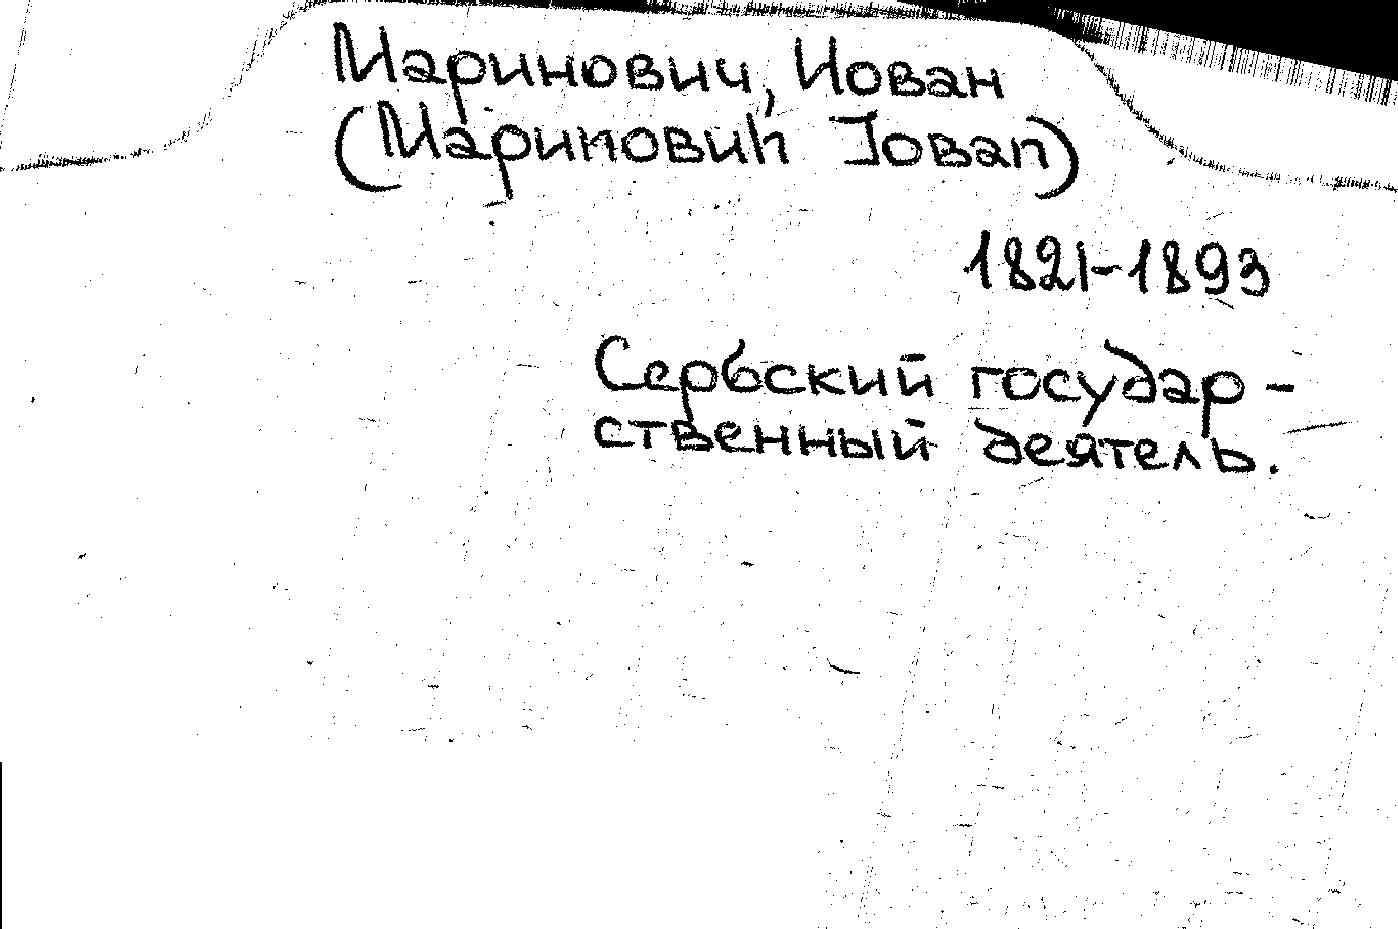 Маринович, Йован
(Мариновић Јован)
1821-1893
Сербский государ-
ственный деятель.